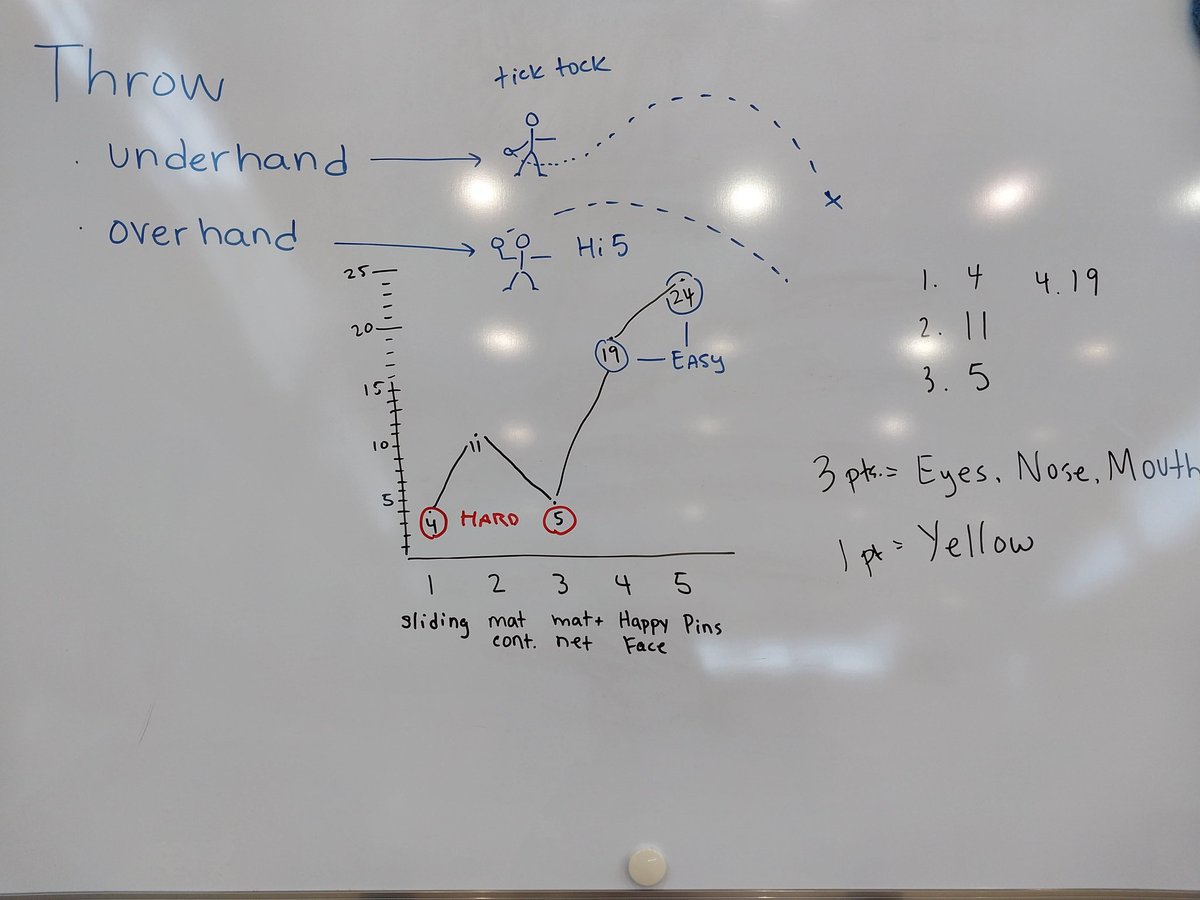 Throw
tick tock
· underhand
x
· overhand
Hi 5
25
20
15
10
5
24
19
EASY
11
4
HARD
5
1 2 3 4 5
sliding mat cont. mat+ net Happy Face Pins
1. 4
2. 11
3. 5
4. 19
3 pts. = Eyes, Nose, Mouth
1 pt = Yellow